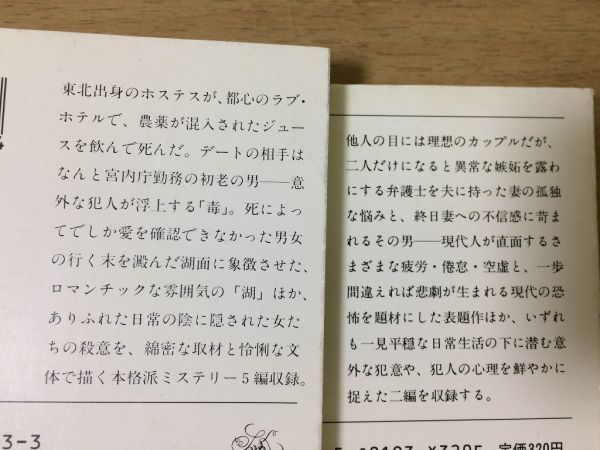 東北出身のホステスが、都心のラブ・
ホテルで、農薬が混入されたジュー
スを飲んで死んだ。デートの相手は
なんと宮内庁勤務の初老の男──意
外な犯人が浮上する「毒」。死によっ
てでしか愛を確認できなかった男女
の行く末を澱んだ湖面に象徴させた、
ロマンチックな雰囲気の「湖」ほか、
ありふれた日常の陰に隠された女た
ちの殺意を、綿密な取材と怜悧な文
体で描く本格派ミステリー5編収録。
3-3
他人の目には理想のカップルだが、
二人だけになると異常な嫉妬を露わ
にする弁護士を夫に持った妻の孤独
な悩みと、終日妻への不信感に苛ま
れるその男──現代人が直面するさ
まざまな疲労・倦怠・空虚と、一歩
間違えれば悲劇が生まれる現代の恐
怖を題材にした表題作ほか、いずれ
も一見平穏な日常生活の下に潜む意
外な犯意や、犯人の心理を鮮やかに
捉えた二編を収録する。
定価320円